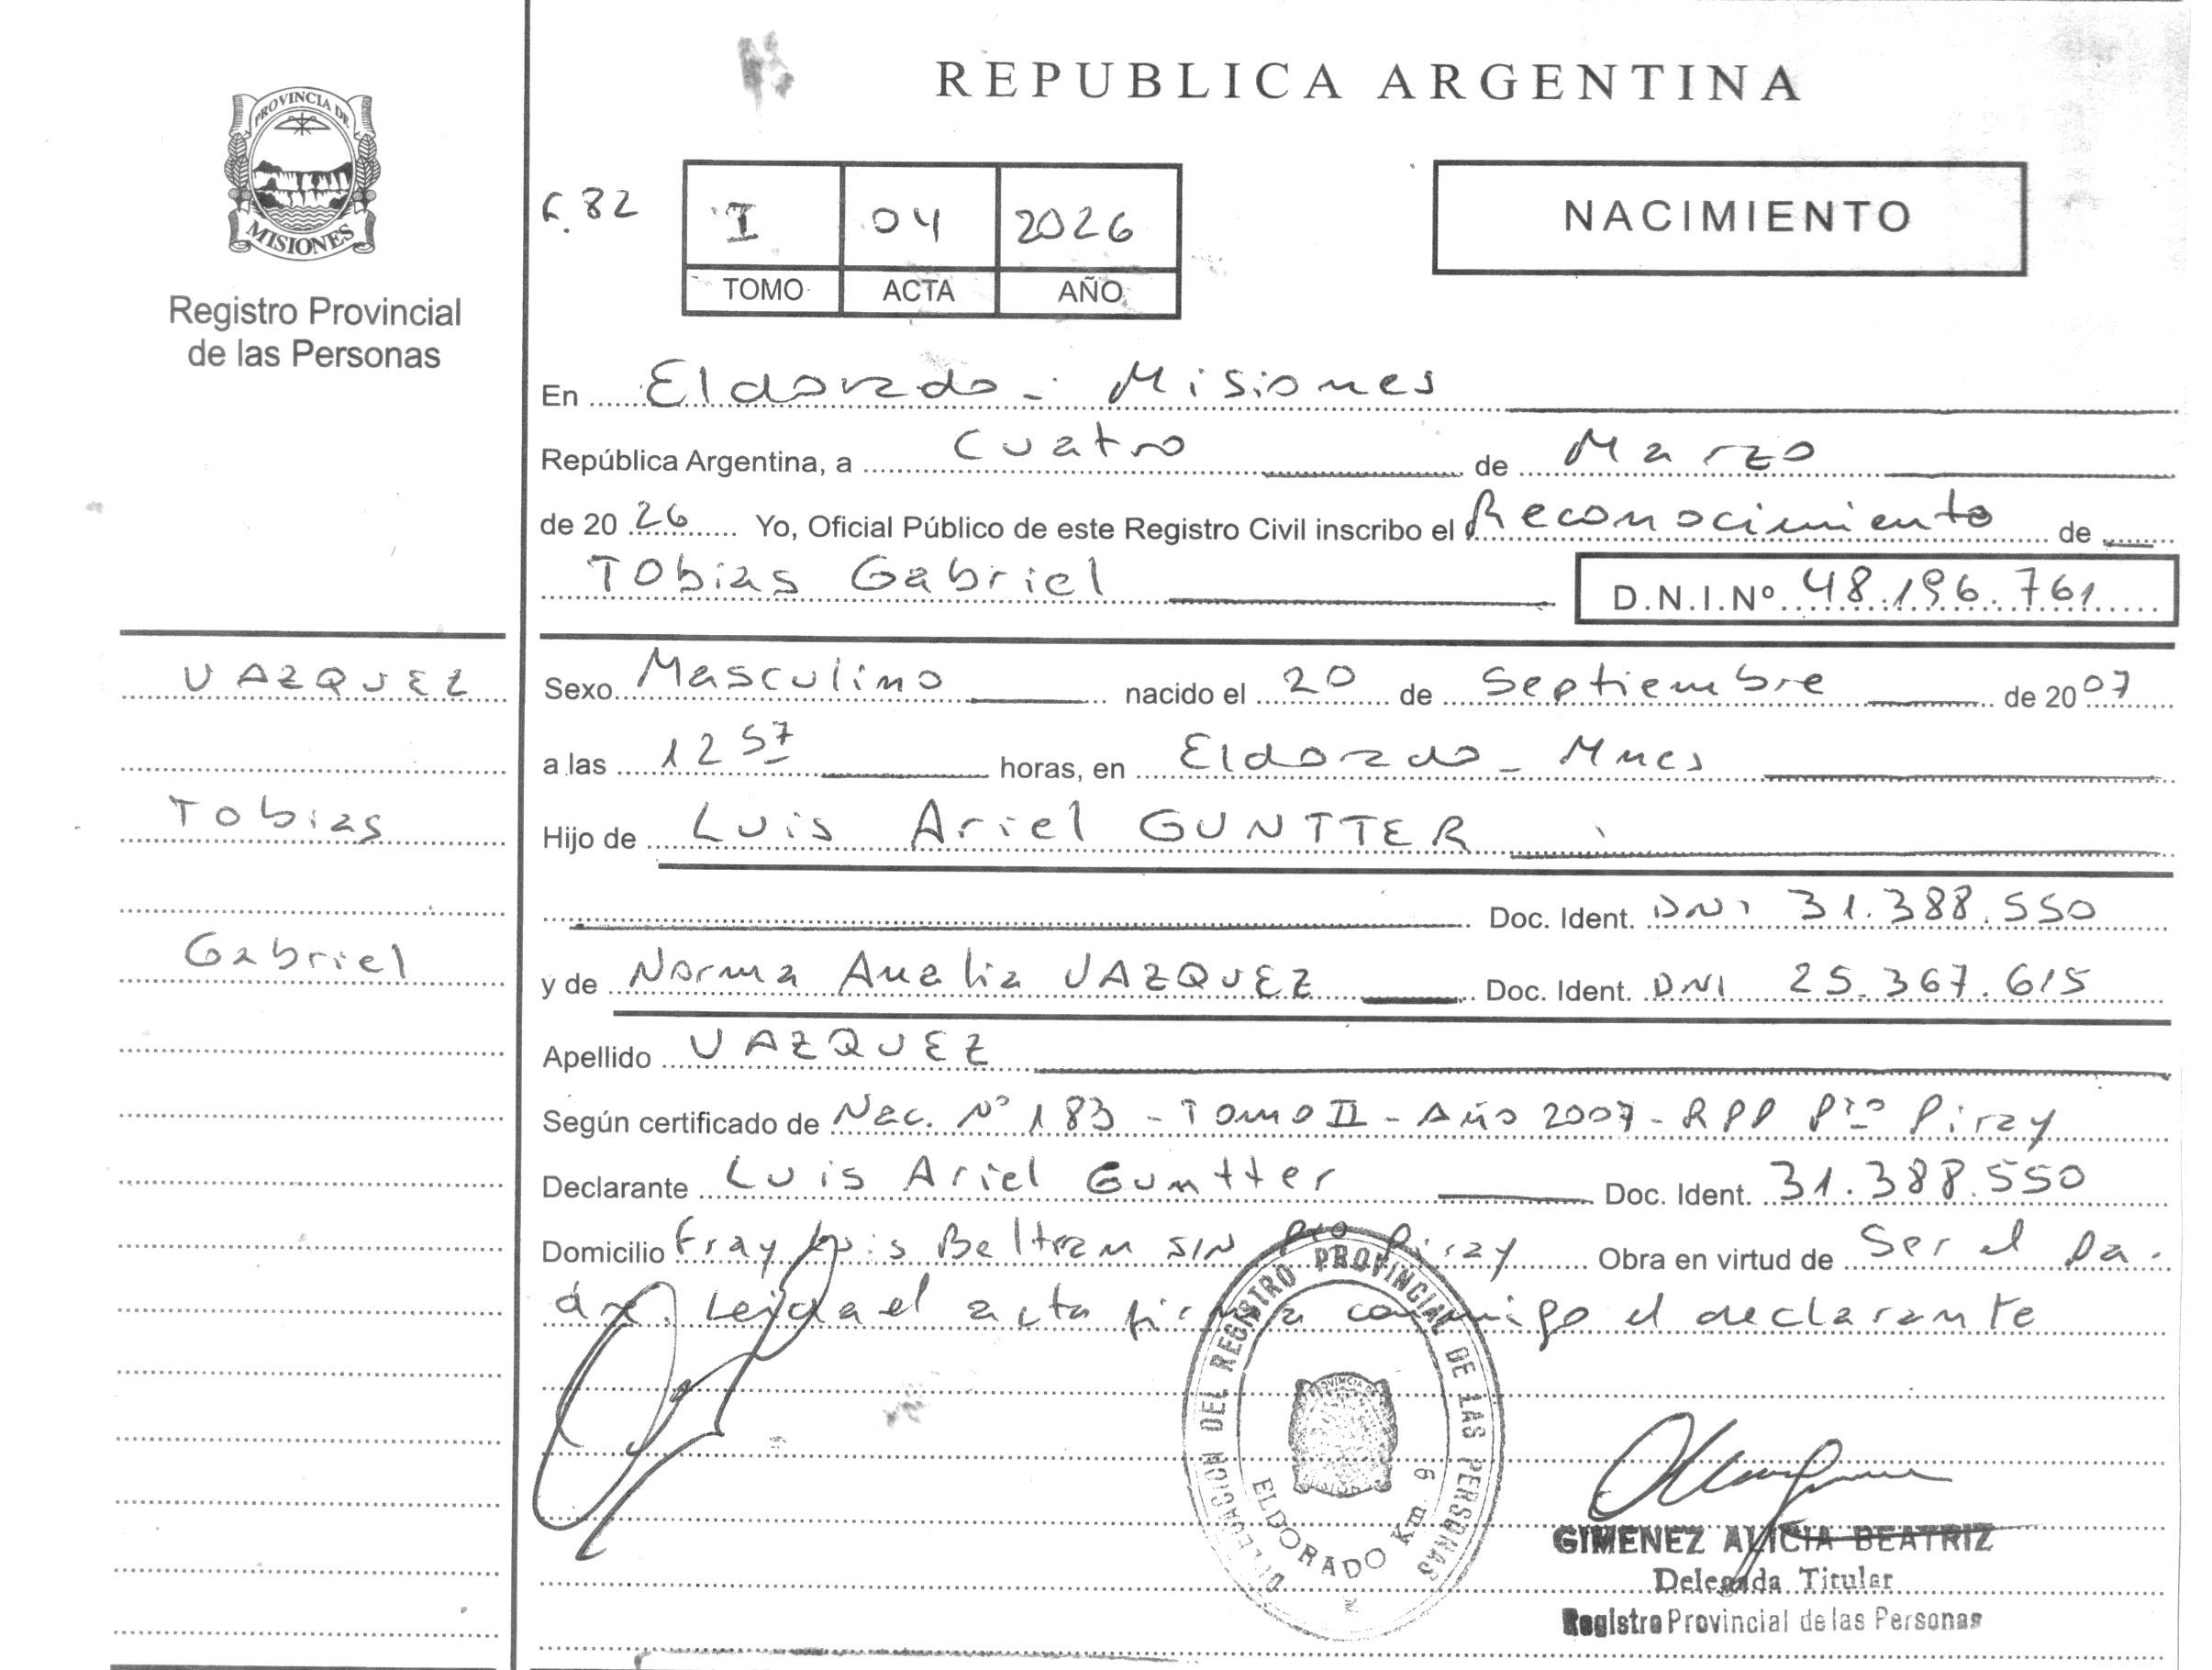 REPUBLICA ARGENTINA
PROVINCIA DE
MISIONES
Registro Provincial
de las Personas
F. 82
I 04 2026
TOMO ACTA AÑO
NACIMIENTO
En Eldorado - Misiones
República Argentina, a Cuatro de Marzo
de 20 26 Yo, Oficial Público de este Registro Civil inscribo el Reconocimiento de
Tobias Gabriel D.N.I.Nº 48.196.761
VAZQUEZ
Tobias
Gabriel
Sexo Masculino nacido el 20 de Septiembre de 20 07
a las 12 57 horas, en Eldorado - Mnes
Hijo de Luis Ariel GUNTTER
Doc. Ident. DNI 31.388.550
y de Norma Analia VAZQUEZ Doc. Ident. DNI 25.367.615
Apellido VAZQUEZ
Según certificado de Nac. Nº 183 - Tomo II - Año 2007 - RPP Pto Piray
Declarante Luis Ariel Guntter Doc. Ident. 31.388.550
Domicilio Fray Luis Beltran S/N Pto Piray Obra en virtud de Ser el pa-
dre. Leida el acta firma conmigo el declarante
DELEGACION DEL REGISTRO PROVINCIAL DE LAS PERSONAS
ELDORADO Km 9
GIMENEZ ALICIA BEATRIZ
Delegada Titular
Registro Provincial de las Personas